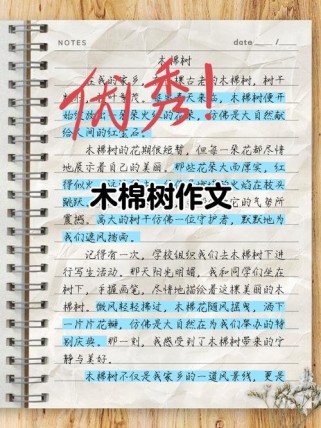 NOTES date / /
木棉树
在我的家乡，棵古老的木棉树，树干
天来临，木棉树便开
始绽放出一朵朵火红的花朵，仿佛是大自然献
给人间的红宝石。
优秀！
木棉树的花期很短暂，但每一朵花都尽情
地展示着自己的美丽。那些花朵大而厚实，红
得似火，的火焰在枝头
跳跃。它的气势所
木棉树作文
震撼。高大的树干仿佛一位守护者，默默地为
我们遮风挡雨。
记得有一次，学校组织我们去木棉树下进
行写生活动。那天阳光明媚，我和同学们坐在
树下，手握画笔，尽情地描绘着这棵美丽的木
棉树。微风轻轻拂过，木棉花随风摇曳，洒下
一片片花瓣，仿佛是大自然在为我们举办的特
别庆典。那一刻，我感受到了木棉树带来的宁
静与美好。
木棉树不仅是我家乡的一道风景线，更是